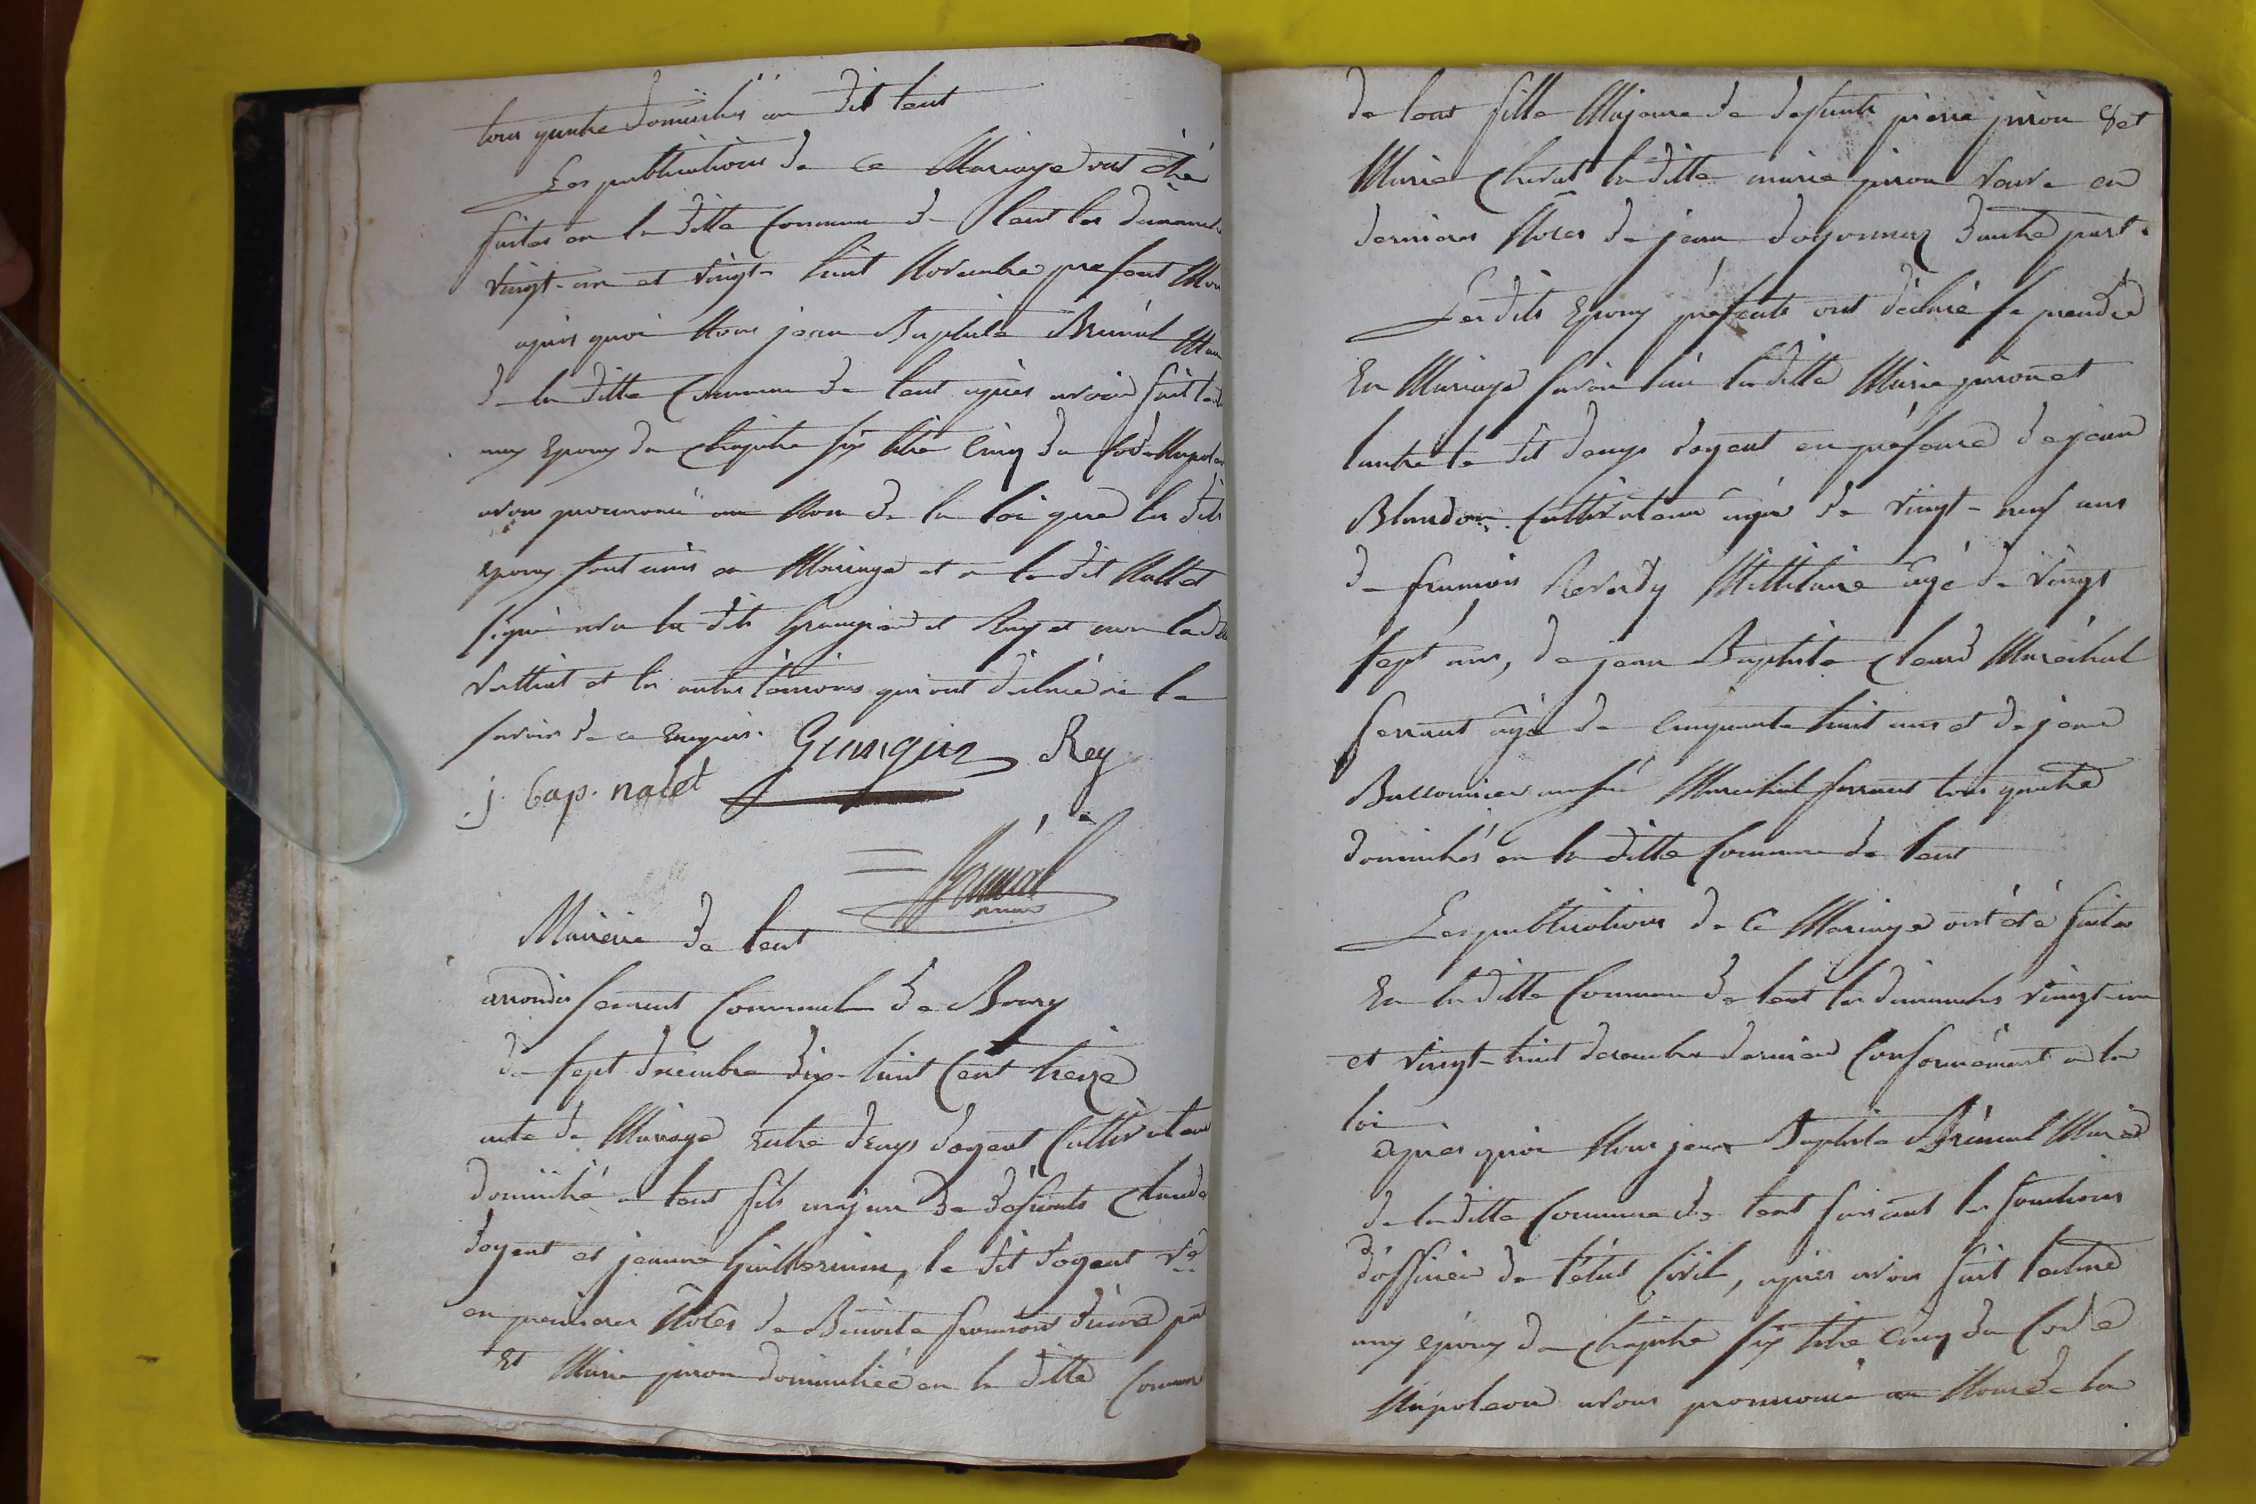 tous quatre domiciliés au dit lent
Les publications de ce Mariage ont été
faites en la ditte Commune de lent les dimanche
vingt-un et vingt-huit Novembre present Moi
après quoi Nous jean Baptiste Brunal Mair
de la ditte Commune de lent après avoir fait lect
aux Epoux du Chapitre six titre Cinq du Code Napoléon
avons prononcé au Nom de la loi que les dits
epoux sont unis en Mariage et a le dit Nallet
signé avec les dits Grangier et Rey et non la d
et les autres témoins qui ont déclaré ne le
savoir de ce enquis.
Rey
j. bap. nalet
Mairie de lent
arrondissement Communal de Bourg
du sept decembre dix-huit Cent treize
acte de Mariage entre denys dogent Cultivateur
domicilié a lent fils majeur de défunts Claude
dogent et jeanne Guillermin, le dit dogent Vf
en premieres Nôces de Benoite d'une part
Et Marie piron domiciliée en la ditte Commun
de lent fille Majeure de defunts pierre piron et
Marie la ditte marie piron veuve en
dernieres Nôces de jean d'autre part.
Les dits Epoux présents ont déclaré se prendre
En Mariage savoir l'un la ditte Marie piron et
l'autre le dit denys dogent en présence de jean
Blandon Cultivateur âgé de vingt-neuf ans
de françois Reverdy Millitaire âgé de vingt
sept ans, de jean Baptiste Maréchal
ferrant âgé de Cinquante huit ans et de jean
Maréchal ferrant tous quatre
domiciliés en la ditte Commune de lent
Les publications de Ce Mariage ont été faites
En la ditte Commune de lent les dimanches vingt-un
et vingt-huit dernier Conformément a la
loi
après quoi Nous jean Baptiste Brunal Maire
de la ditte Commune de lent faisant les fonctions
d'officier de l'état Civil, après avoir fait lecture
aux epoux du Chapitre six titre Cinq du Code
Napoleon avons prononcé au Nom de la